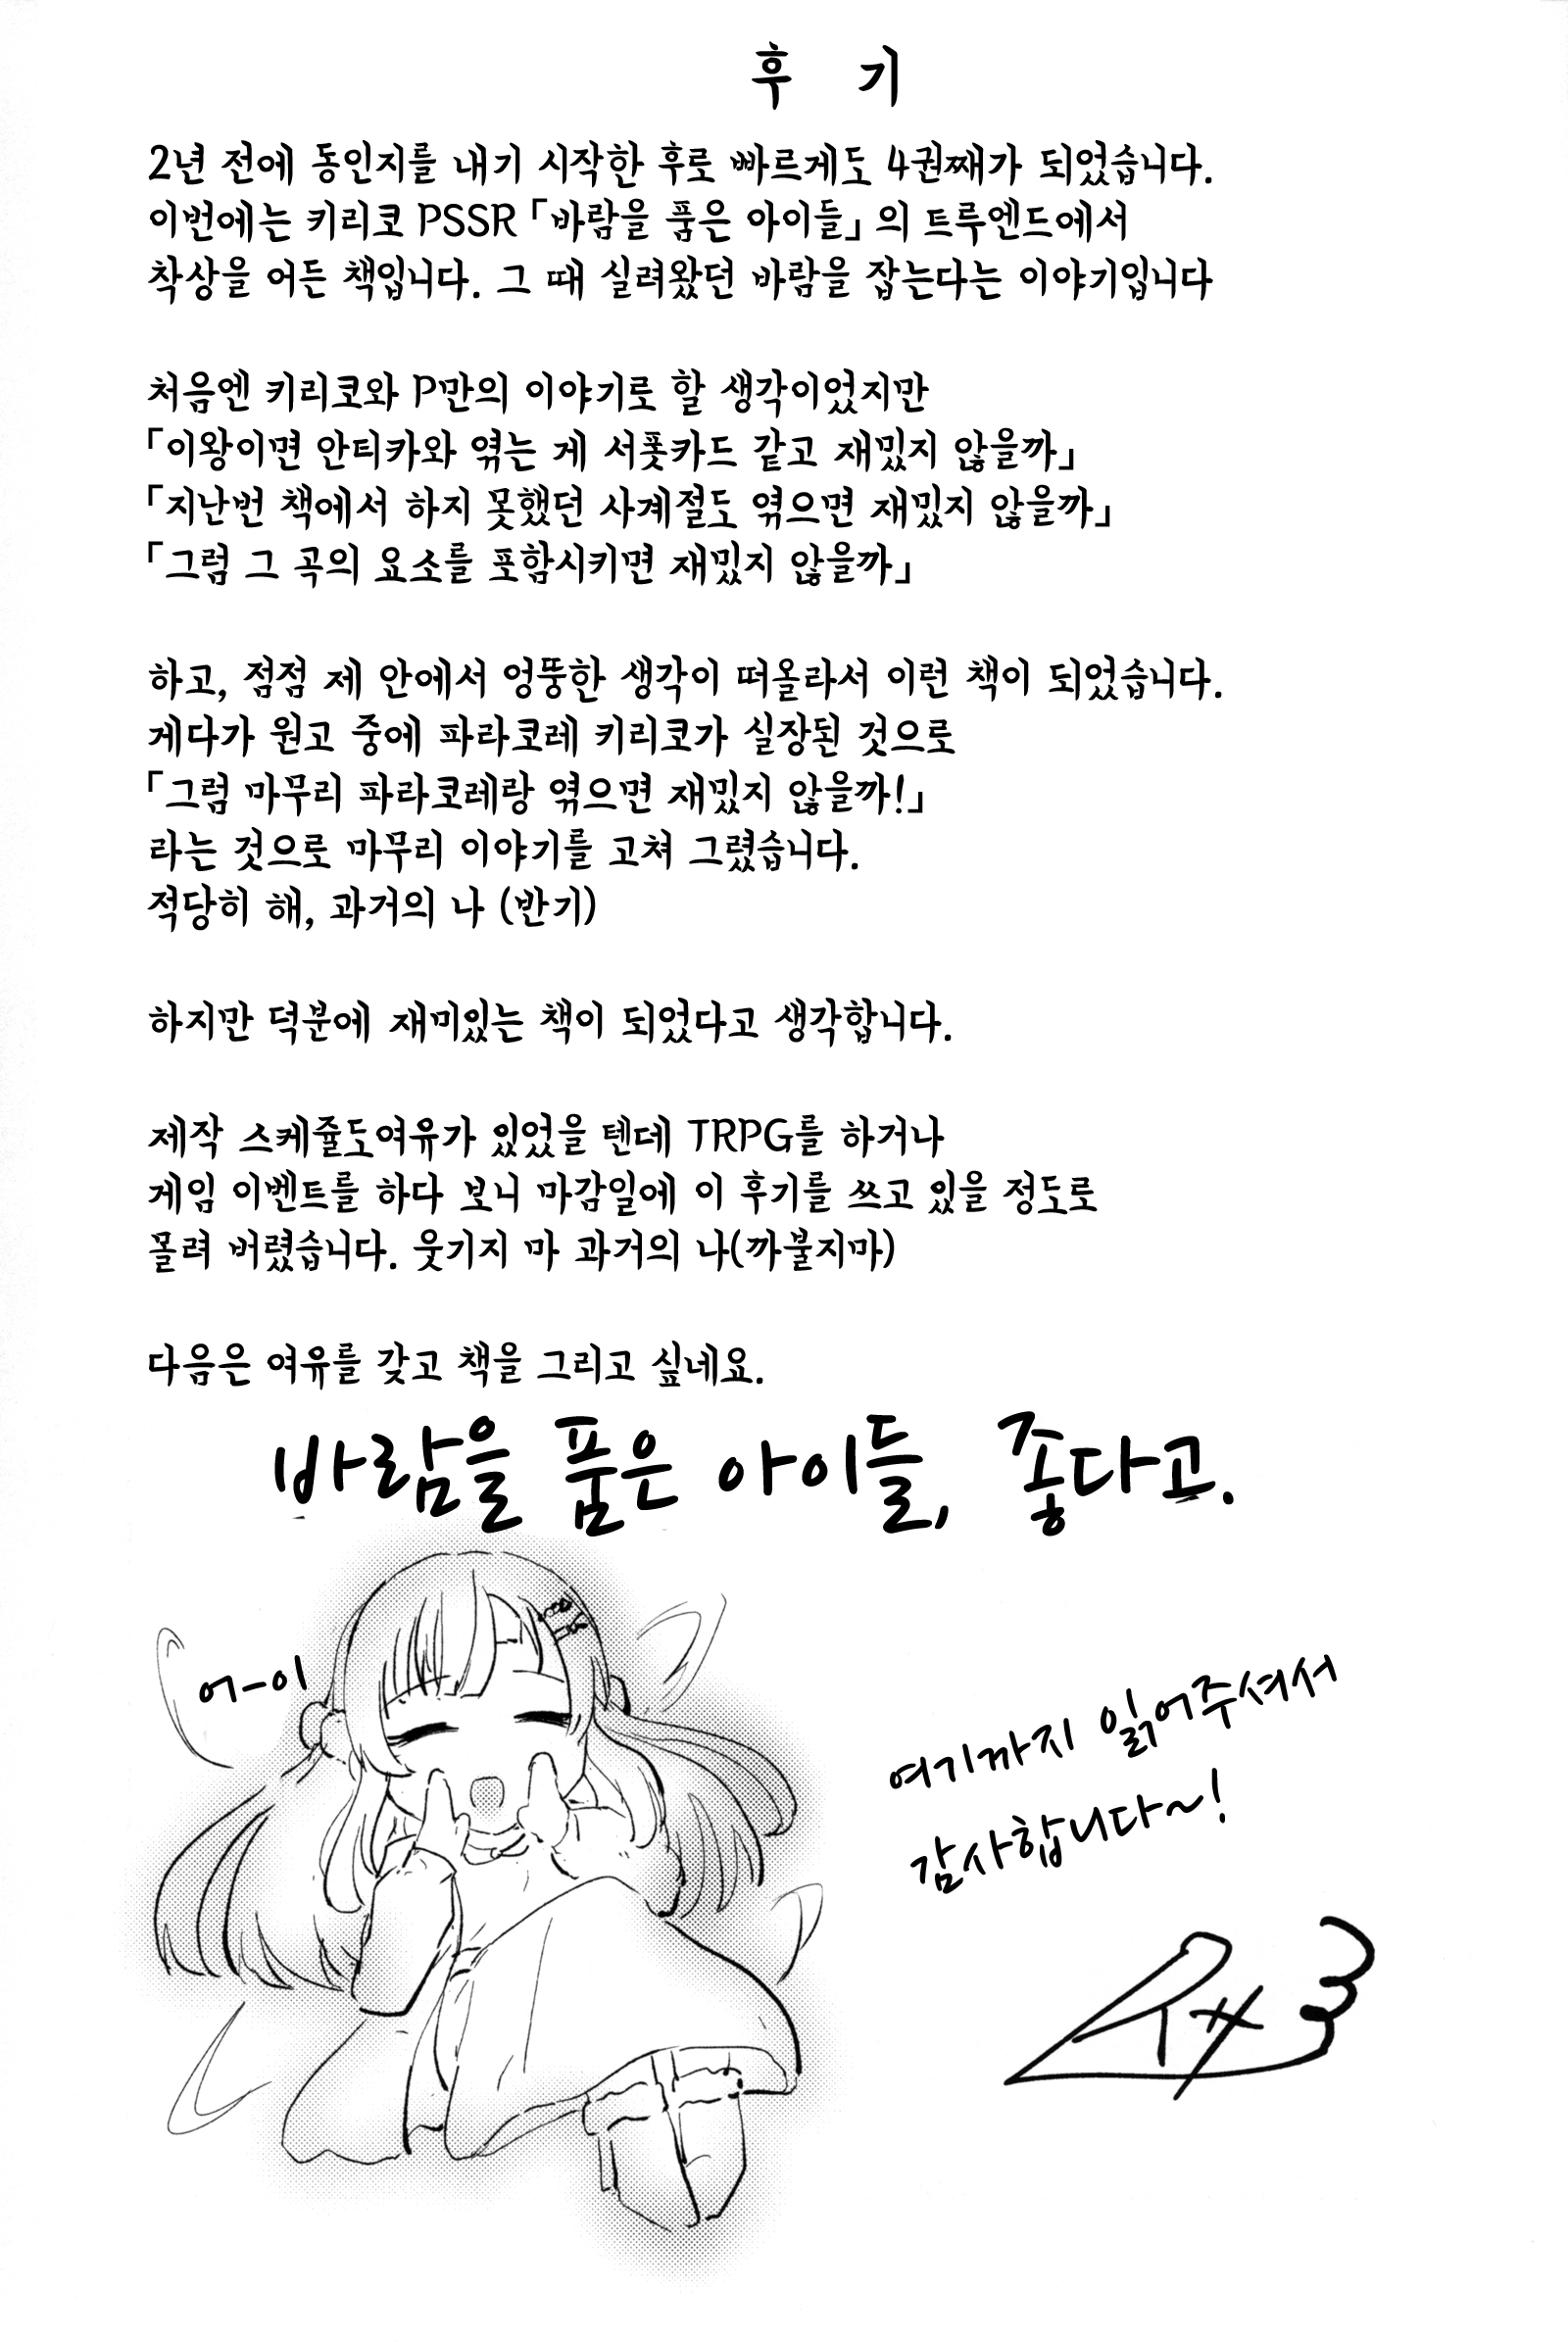 후 기
2년 전에 동인지를 내기 시작한 후로 빠르게도 4권째가 되었습니다.
이번에는 키리코 PSSR 「바람을 품은 아이들」 의 트루엔드에서
착상을 어든 책입니다. 그 때 실려왔던 바람을 잡는다는 이야기입니다
처음엔 키리코와 P만의 이야기로 할 생각이었지만
「이왕이면 안티카와 엮는 게 서폿카드 같고 재밌지 않을까」
「지난번 책에서 하지 못했던 사계절도 엮으면 재밌지 않을까」
「그럼 그 곡의 요소를 포함시키면 재밌지 않을까」
하고, 점점 제 안에서 엉뚱한 생각이 떠올라서 이런 책이 되었습니다.
게다가 원고 중에 파라코레 키리코가 실장된 것으로
「그럼 마무리 파라코레랑 엮으면 재밌지 않을까!」
라는 것으로 마무리 이야기를 고쳐 그렸습니다.
적당히 해, 과거의 나 (반기)
하지만 덕분에 재미있는 책이 되었다고 생각합니다.
제작 스케쥴도여유가 있었을 텐데 TRPG를 하거나
게임 이벤트를 하다 보니 마감일에 이 후기를 쓰고 있을 정도로
몰려 버렸습니다. 웃기지 마 과거의 나(까불지마)
다음은 여유를 갖고 책을 그리고 싶네요.
바람을 품은 아이들, 좋다고.
어-이
여기까지 읽어주셔서
감사합니다~!